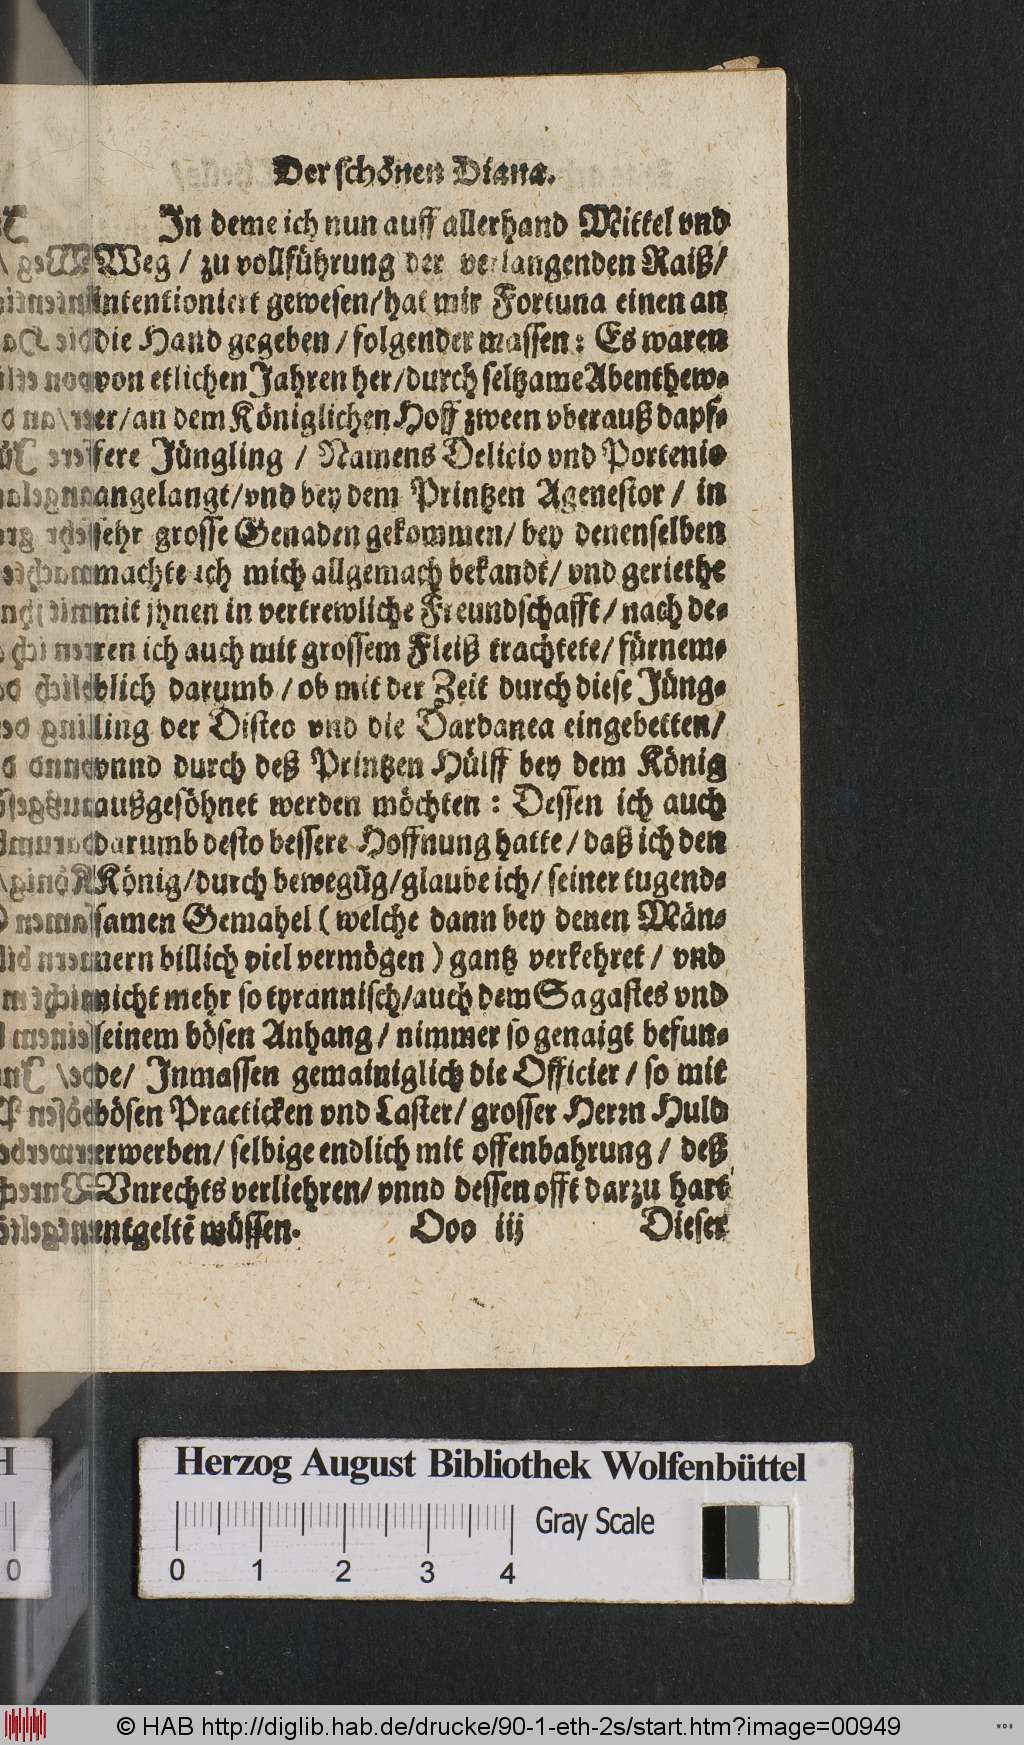 Der schönen Diana.
In deme ich nun auff allerhand Mittel vnd
Weg / zu vollführung der verlangenden Raiß /
intentioniert gewesen / hat mir Fortuna einen an
die Hand gegeben / folgender massen : Es waren
von etlichen Jahren her / durch seltzame Abenthew⸗
er / an dem Königlichen Hoff zween vberauß dapf⸗
fere Jüngling / Namens Delicio vnd Portenio
angelangt / vnd bey dem Printzen Agenestor / in
sehr grosse Genaden gekommen / bey denenselben
machte ich mich allgemach bekandt / vnd geriethe
mit jhnen in vertrewliche Freundschafft / nach de⸗
ren ich auch mit grossem Fleiß trachtete / fürnem⸗
blich darumb / ob mit der Zeit durch diese Jüng⸗
ling der Disteo vnd die Dardanea eingebetten /
vnnd durch deß Printzen Hülff bey dem König
außgesöhnet werden möchten : Dessen ich auch
darumb desto bessere Hoffnung hatte / daß ich den
König / durch bewegũg / glaube ich / seiner tugend⸗
samen Gemahel ( welche dann bey denen Män⸗
nern billich viel vermögen ) gantz verkehret / vnd
nicht mehr so tyrannisch / auch dem Sagastes vnd
seinem bösen Anhang / nimmer so genaigt befun⸗
de / Inmassen gemainiglich die Officier / so mit
bösen Practicken vnd Laster / grosser Herrn Huld
erwerben / selbige endlich mit offenbahrung / deß
Vnrechts verliehren / vnnd dessen offt darzu hart
entgeltẽ müssen. Ooo iij Dieser
Herzog August Bibliothek Wolfenbüttel
Gray Scale
0 1 2 3 4
© HAB http://diglib.hab.de/drucke/90-1-eth-2s/start.htm?image=00949